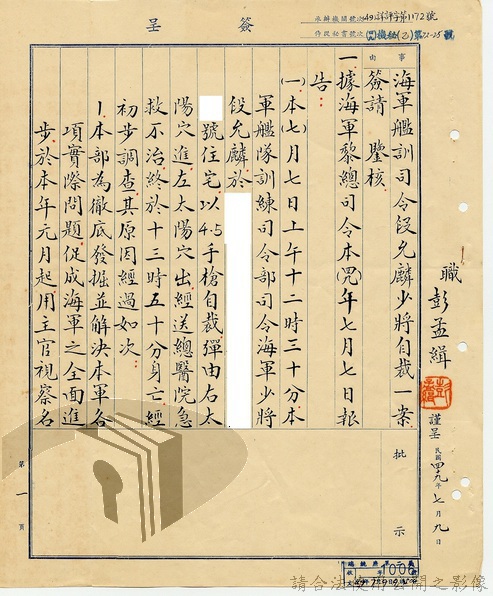 簽呈
承辦機關號次
(49)詳評字第1172號
件投秘書號次
機秘(乙)第72-25號
事由
海軍艦訓司令段允麟少將自裁一案
簽請　鑒核
職　彭孟緝　謹呈
民國四九年七月九日
一據海軍黎總司令本(四九)年七月七日報
告
(一)本(七)月七日上午十二時三十分本
軍艦隊訓練司令部司令海軍少將
段允麟於
號住宅以4.5手槍自裁彈由右太
陽穴進左太陽穴出經送總醫院急
救不治終於十三時五十分身亡經
初步調查其原因經過如次
1本部為徹底發掘並解決本軍各
項實際問題促成海軍之全面進
步於本年元月起用主官視察名
批示
第一頁
請合法使用公開之影像